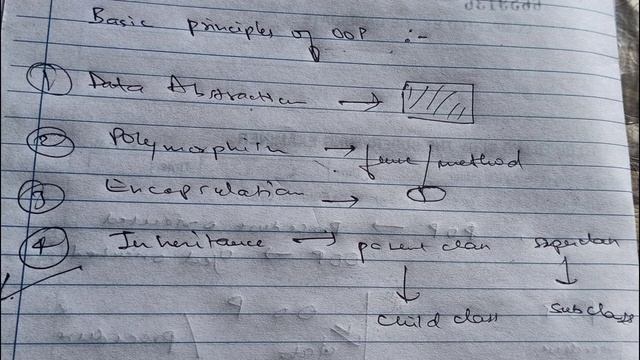 Basic principles of OOP :-
① Data Abstraction →
② Polymorphism → func / method
③ Encapsulation →
④ Inheritance → parent class superclass
↓ ↓
child class subclass